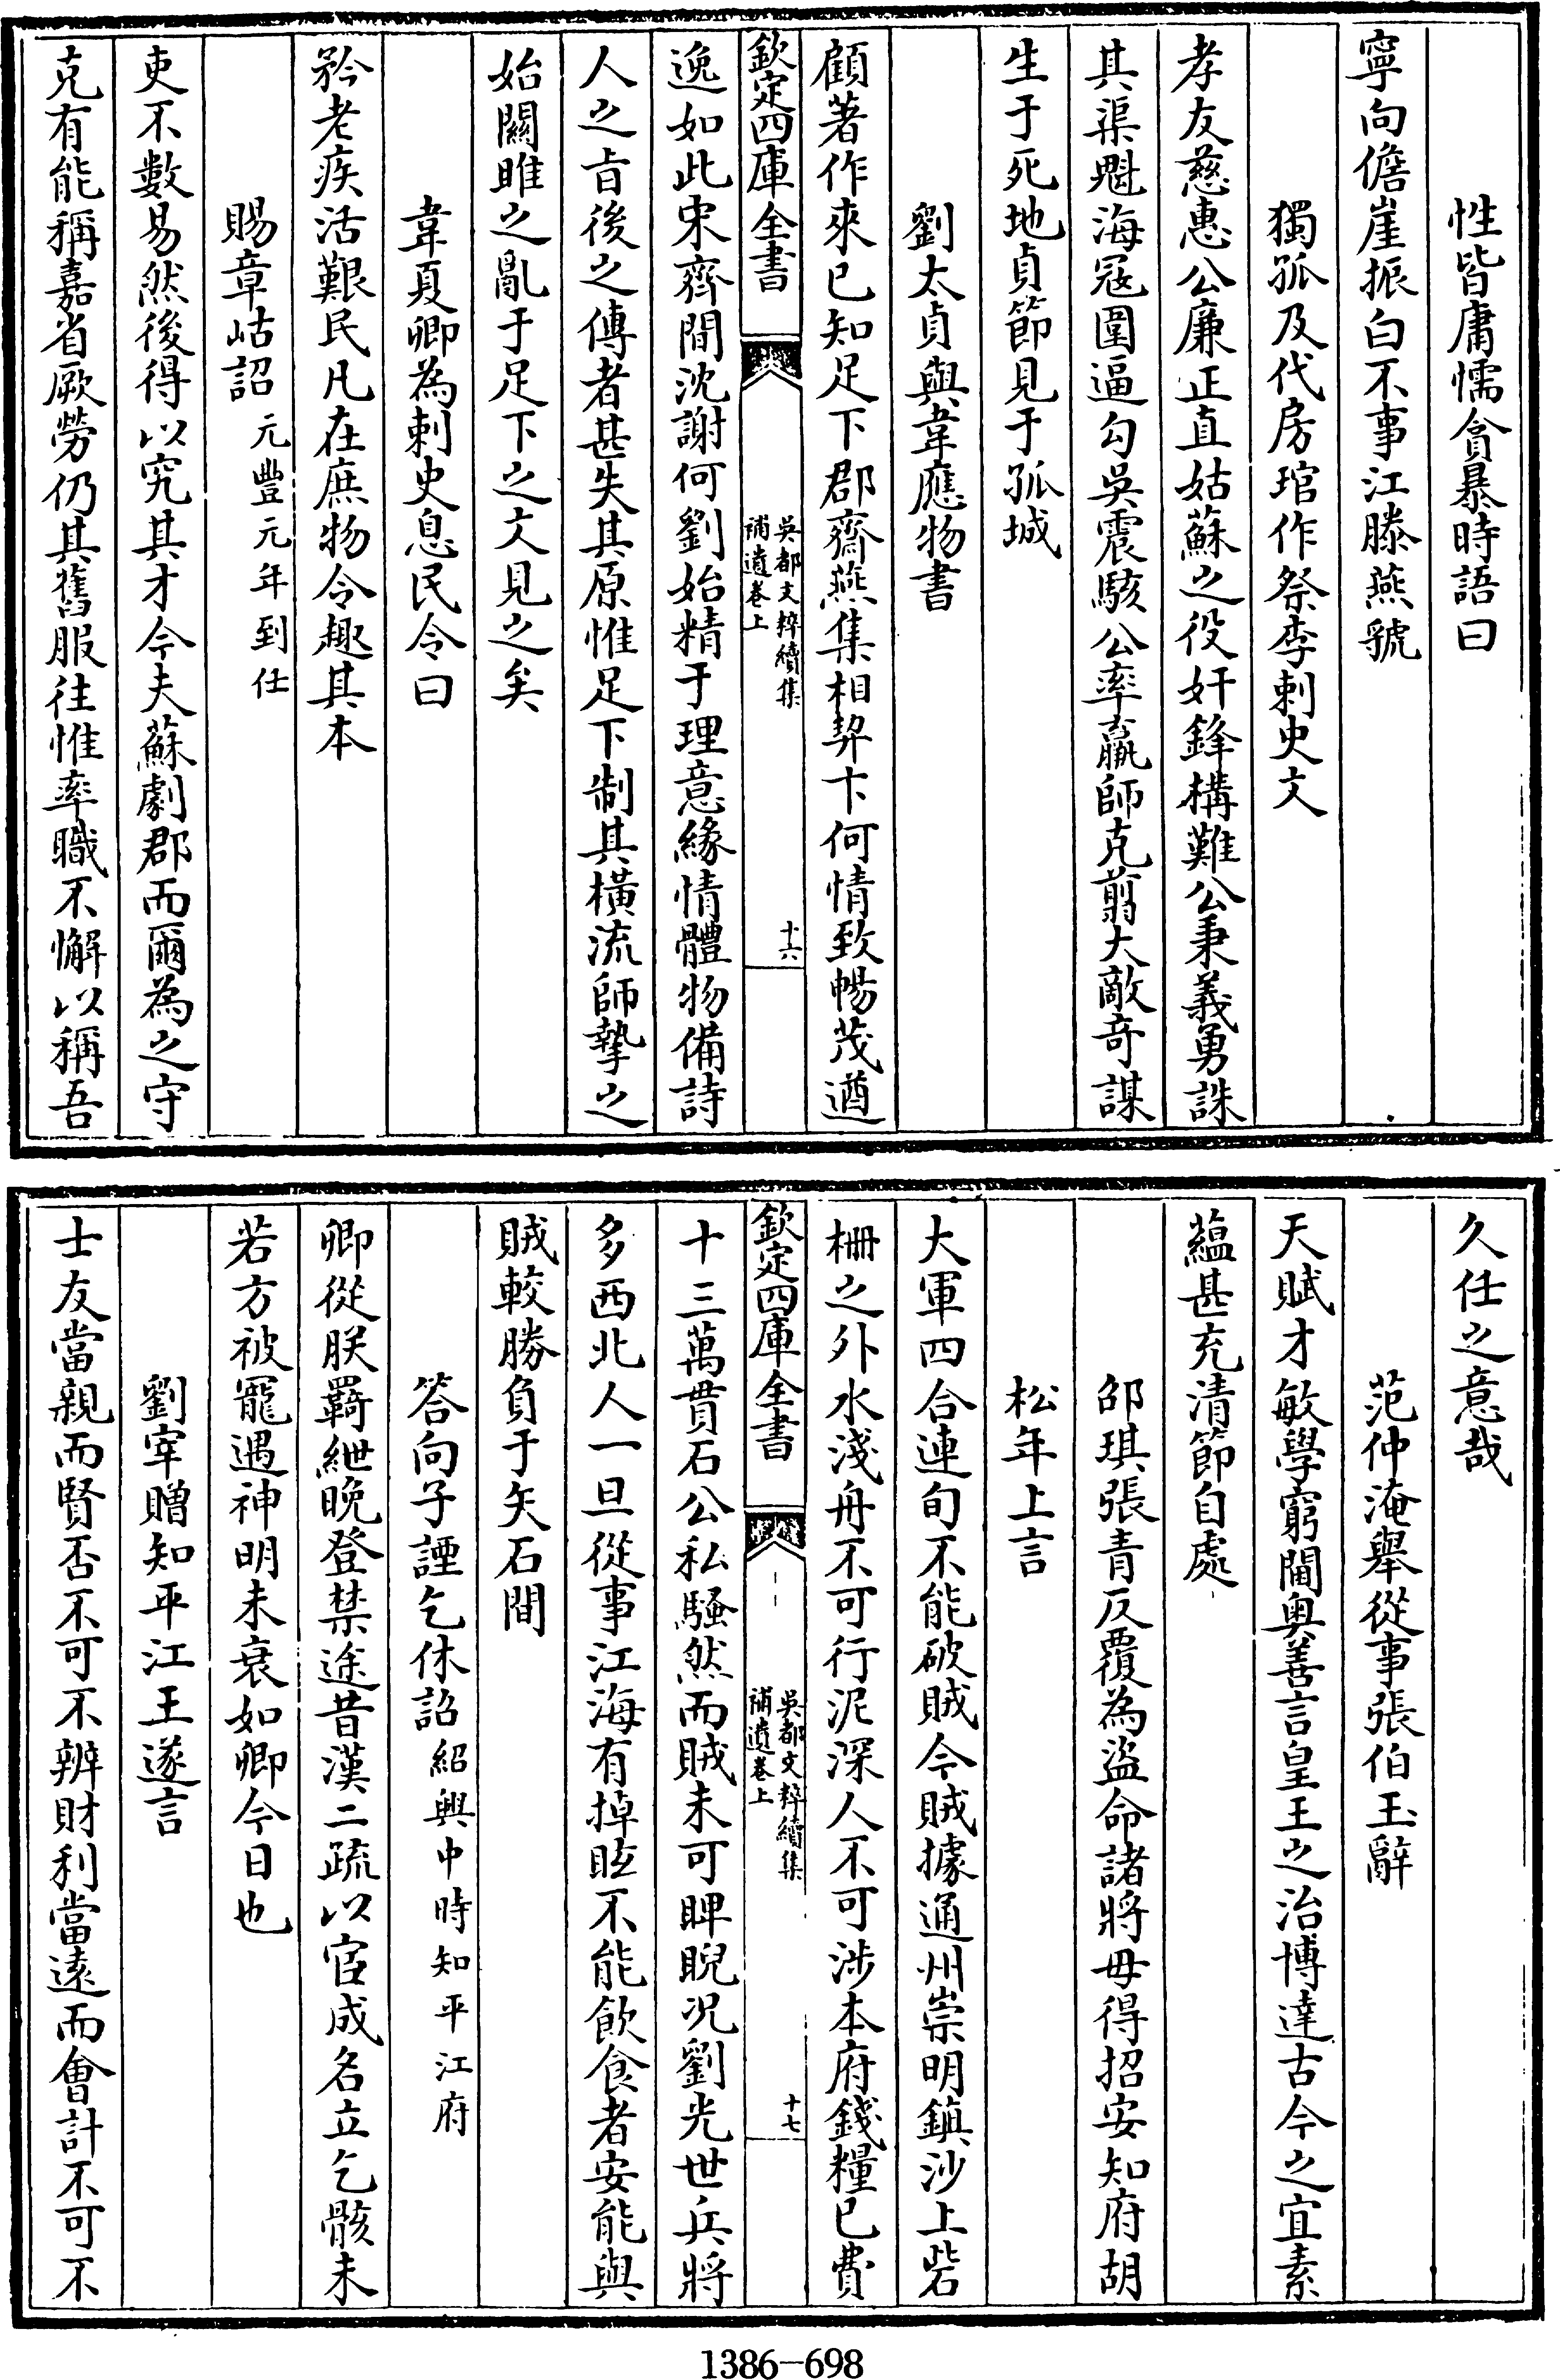 性皆庸懦貪暴時語曰
寧向儋崖振白不事江滕燕虢
獨孤及代房琯作祭李刺史文
孝友慈惠公廉正直姑蘇之役奸鋒構難公秉義勇誅
其渠魁海冦圍逼勾吳震駭公率羸師克翦大敵奇謀
生于死地貞節見于孤城
劉太貞與韋應物書
顧著作來已知足下郡齋燕集相契卞何情致暢茂遒
欽定四庫全書
吳都文粹續集
補遺卷上
十六
逸如此宋齊間沈謝何劉始精于理意緣情體物備詩
人之㫖後之傳者甚失其原惟足下制其橫流師摯之
始關雎之亂于足下之文見之矣
韋夏卿為刺史息民令曰
矜老疾活艱民凡在庶物令趣其本
賜章岵詔元豐元年到任
吏不數易然後得以究其才今夫蘇劇郡而爾為之守
克有能稱嘉省厥勞仍其舊服往惟率職不懈以稱吾
久任之意哉
范仲淹舉從事張伯玉辭
天賦才敏學窮閫奥善言皇王之治博達古今之宜素
藴甚充清節自處
邵琪張青反覆為盜命諸將毋得招安知府胡
松年上言
大軍四合連旬不能破賊今賊據通州崇明鎮沙上砦
柵之外水淺舟不可行泥深人不可涉本府錢糧已費
欽定四庫全書
吳都文粹續集
補遺卷上
十七
十三萬貫石公私騷然而賊未可睥睨况劉光世兵將
多西北人一旦從事江海有掉眩不能飲食者安能與
賊較勝負于矢石間
答向子諲乞休詔紹興中時知平江府
卿從朕羇紲晚登禁途昔漢二疏以宦成名立乞骸未
若方被寵遇神明未衰如卿今日也
劉宰贈知平江王遂言
士友當親而賢否不可不辨財利當逺而會計不可不
1386-698